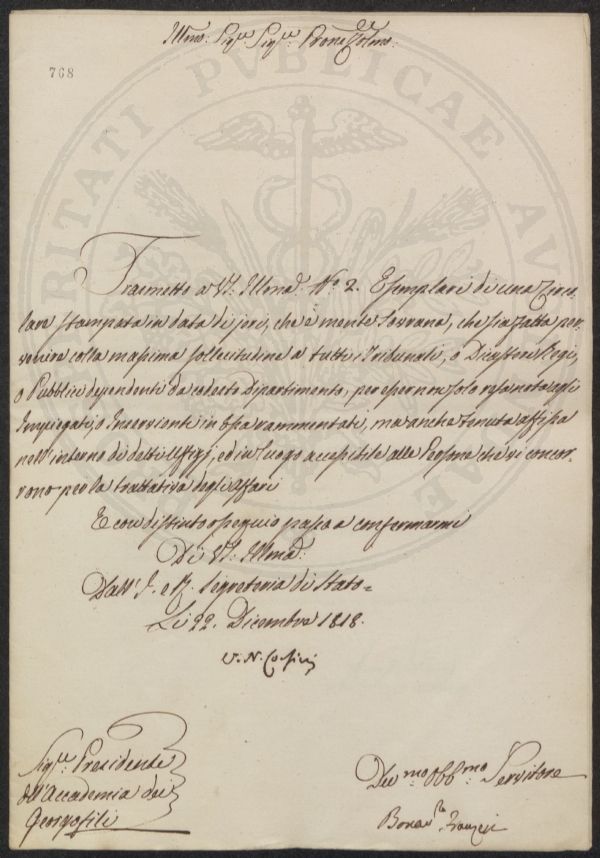 Illmo: Sigre Sigre: Prone Colmo:
768
Trasmetto a VS. Illma: No: 2. Esemplari di una Circo-
lare stampata in data di jeri, che è mente Sovrana, che sia fatta per-
venire colla massima sollecitudine a tutti i Tribunali, o Dicasteri Regj,
o Pubblici dipendenti da codesto Dipartimento, per esser non solo resa nota agli
Impiegati, o Inservienti in essa rammentati, ma anche tenuta affissa
nell'interno di detti Uffizj, ed in luogo accessibile alle Persone che vi concor-
rono per la trattativa degli affari
E con distinto ossequio passo a confermarmi
Di VS. Illma:
Dall' I. e R. Segreteria di Stato =
Li 22. Dicembre 1818.
V. N. Corsini
Sigre: Presidente
dell'Accademia dei
Georgofili
Devmo Obbmo Servitore
PVBLICAE